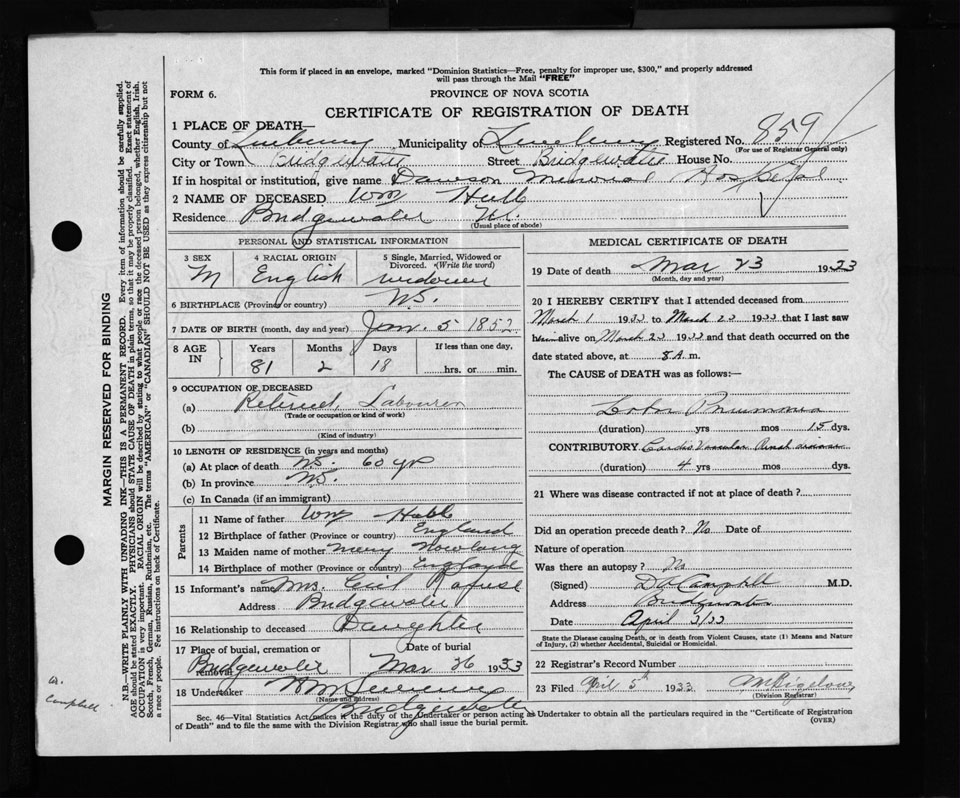 This form if placed in an envelope, marked "Dominion Statistics—Free, penalty for improper use, $300," and properly addressed
will pass through the Mail "FREE"
FORM 6.
PROVINCE OF NOVA SCOTIA
CERTIFICATE OF REGISTRATION OF DEATH
1 PLACE OF DEATH—
County of Lunenburg Municipality of Lunenburg Registered No. 859
(For use of Registrar General only)
City or Town Bridgewater Street Bridgewater House No.
If in hospital or institution, give name Dawson Memorial Hospital
2 NAME OF DECEASED Wm
Residence Bridgewater N.S.
(Usual place of abode)
PERSONAL AND STATISTICAL INFORMATION
3 SEX M
4 RACIAL ORIGIN English
5 Single, Married, Widowed or Divorced. (Write the word) widower
6 BIRTHPLACE (Province or country) N.S.
7 DATE OF BIRTH (month, day and year) Jan. 5 1852
8 AGE IN Years 81 Months 2 Days 18 If less than one day, hrs. or min.
9 OCCUPATION OF DECEASED
(a) Retired Labourer
(Trade or occupation or kind of work)
(b)
(Kind of industry)
10 LENGTH OF RESIDENCE (in years and months)
(a) At place of death N.S. 60 yr
(b) In province N.S.
(c) In Canada (if an immigrant)
Parents
11 Name of father Wm
12 Birthplace of father (Province or country) England
13 Maiden name of mother Mary
14 Birthplace of mother (Province or country) England
15 Informant's name Mrs. Cecil Rafuse
Address Bridgewater
16 Relationship to deceased Daughter
17 Place of burial, cremation or removal Bridgewater Date of burial Mar 26 1933
18 Undertaker
(Name and address)
Bridgewater
MEDICAL CERTIFICATE OF DEATH
19 Date of death Mar 23 1933
(Month, day and year)
20 I HEREBY CERTIFY that I attended deceased from
March 1 1933 to March 23 1933 that I last saw
him alive on March 23 1933 and that death occurred on the
date stated above, at 8 A. m.
The CAUSE of DEATH was as follows:—
Lobar Pneumonia
(duration) yrs mos 15 dys.
CONTRIBUTORY Cardio Vascular Renal disease
(duration) 4 yrs mos dys.
21 Where was disease contracted if not at place of death?
Did an operation precede death? No Date of
Nature of operation
Was there an autopsy? No
(Signed) D A Campbell M.D.
Address Bridgewater
Date April 3/33
State the Disease causing Death, or in death from Violent Causes, state (1) Means and Nature
of Injury, (2) whether Accidental, Suicidal or Homicidal.
22 Registrar's Record Number
23 Filed April 5th 1933
(Division Registrar)
Sec. 46—Vital Statistics Act makes it the duty of the Undertaker or person acting as Undertaker to obtain all the particulars required in the "Certificate of Registration
of Death" and to file with the Division Registrar who shall issue the burial permit.
(OVER)
MARGIN RESERVED FOR BINDING
N.B.—WRITE PLAINLY WITH UNFADING INK—THIS IS A PERMANENT RECORD. Every item of information should be carefully supplied.
AGE should be stated EXACTLY. PHYSICIANS should STATE CAUSE OF DEATH in plain terms, so that it may be properly classified. Exact statement of
OCCUPATION is very important. RACIAL ORIGIN will be described by stating to what people or race the deceased person belonged, whether English, Irish,
Scotch, French, German, Russian, Ruthenian, etc. The terms "AMERICAN" or "CANADIAN" SHOULD NOT BE USED as they express citizenship but not
a race or people. Fee instructions on back of Certificate.
Campbell